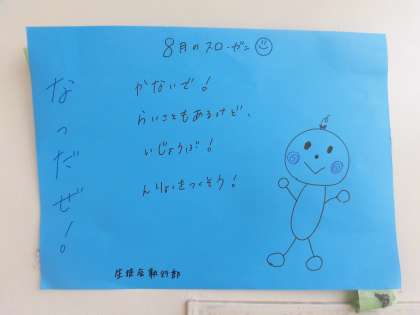 8月のスローガン
なつだぜ!
かないで!
らいこともあるけど、
いじょうぶ!
んりょくをつくそう!
生徒会執行部